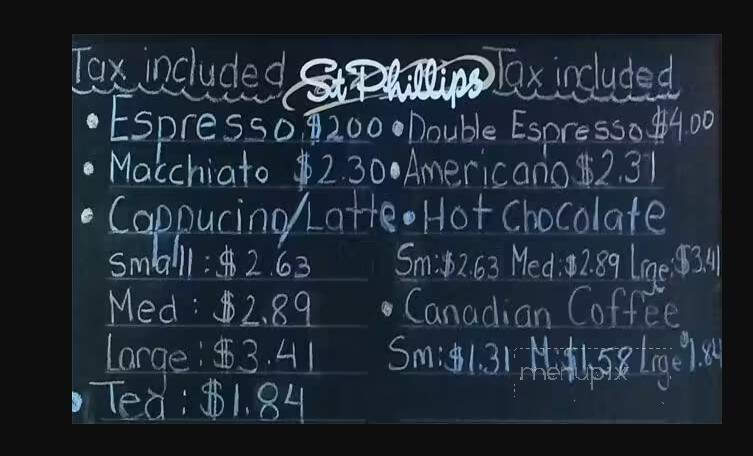 Tax included St Phillips Tax included
• Espresso $2.00 • Double Espresso $4.00
• Macchiato $2.30 • Americano $2.31
• Cappucino/Latte • Hot Chocolate
Small : $2.63 Sm:$2.63 Med:$2.89 Lrge:$3.41
Med : $2.89 • Canadian Coffee
Large : $3.41 Sm:$1.31 M:$1.58 Lrge $1.84
menupix
• Tea : $1.84